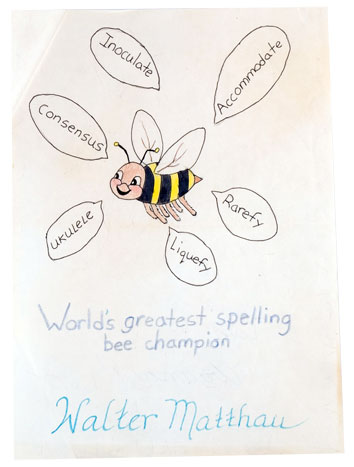 Inoculate
Accommodate
Consensus
Rarefy
ukulele
Liquefy
World's greatest spelling
bee champion
Walter Matthau